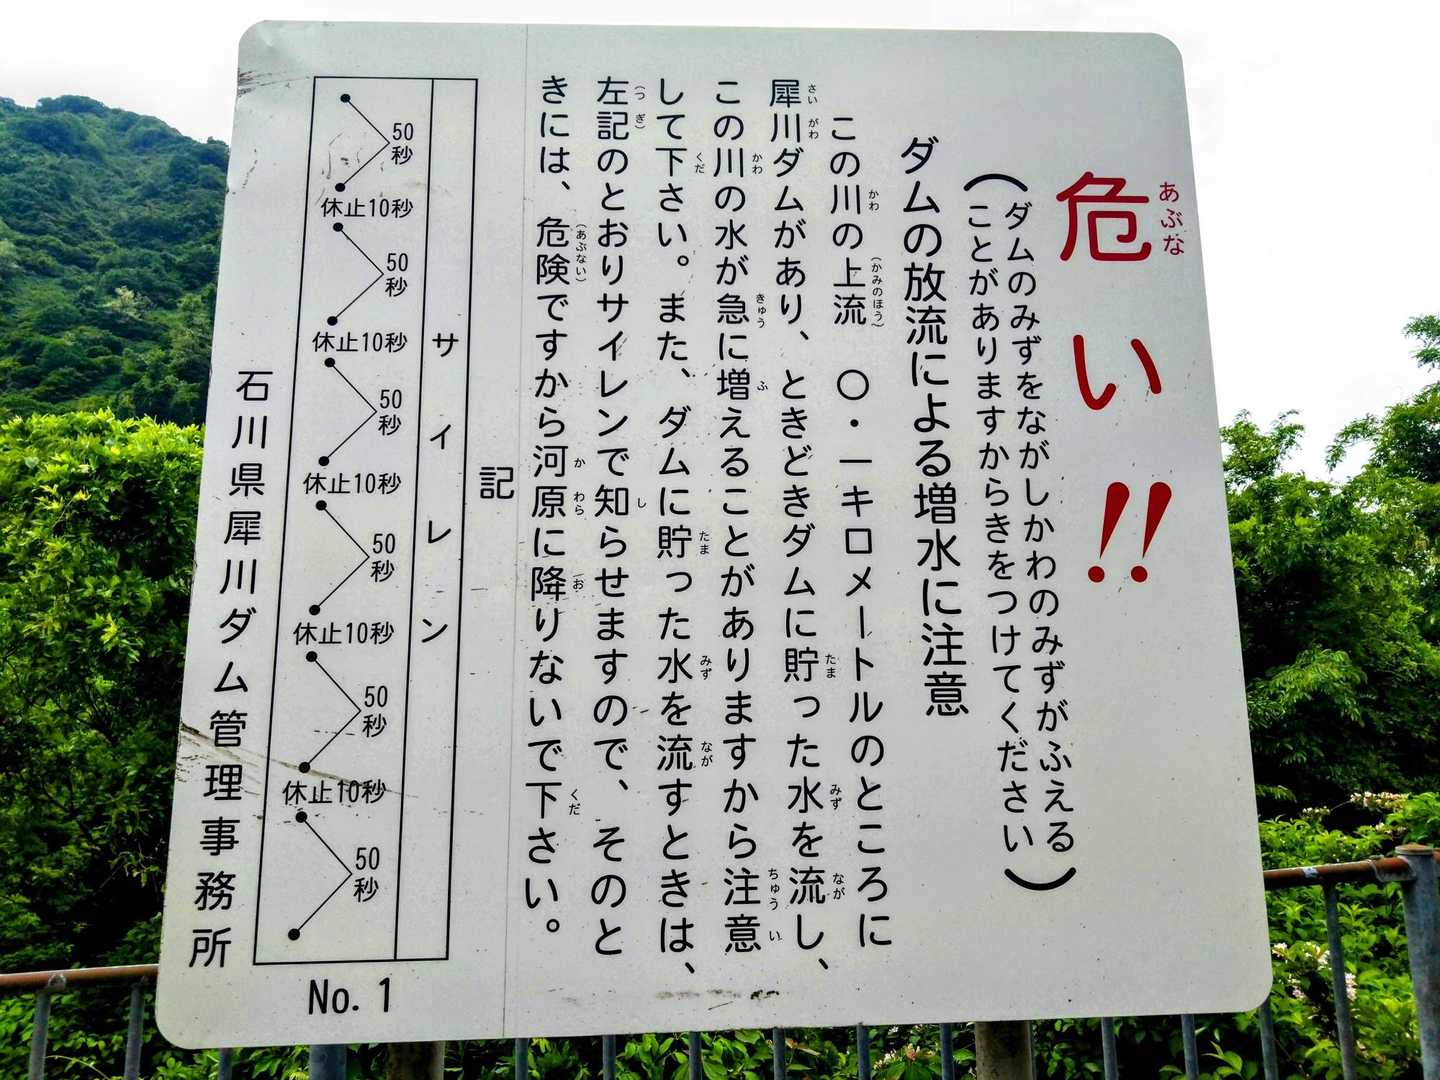 危い!!
あぶな
(ダムのみずをながしかわのみずがふえる
ことがありますからきをつけてください)
ダムの放流による増水に注意
この川の上流 〇・一キロメートルのところに
かわ (かみのほう)
犀川ダムがあり、ときどきダムに貯った水を流し、
さい がわ たま みず なが
この川の水が急に増えることがありますから注意
かわ きゅう ふ ちゅう い
して下さい。また、ダムに貯った水を流すときは、
くだ たま みず なが
左記のとおりサイレンで知らせますので、そのと
(つぎ) し
きには、危険ですから河原に降りないで下さい。
(あぶない) か わら お くだ
記
サイレン
50秒
休止10秒
50秒
休止10秒
50秒
休止10秒
50秒
休止10秒
50秒
休止10秒
50秒
石川県犀川ダム管理事務所
No. 1